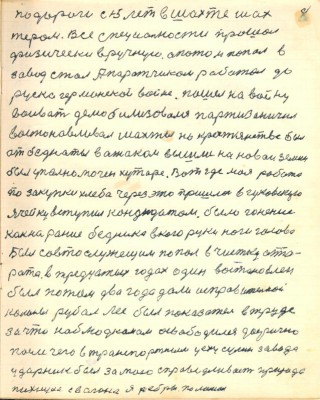 81
подороги с 15 лет в шахте шах
тером. Все специальности прошол
физически вручную, а потом попол в
завод стал Апаратчиком работол до
руско германской войне. пошел на войну
воивал демобилизовался партизанил
востонавливал шахты но крестьянстве был
от бедноты вожаком вышли на новаи земли
был уполно мочен хутора. Вот где моя работа
по закупки хлеба через это пришлось в гуковскую
ячейку вступил кондидатом, было гонение
как на рание бедника вкого руки ноги голова
Был совтослужещим попол в чистку опто-
рата, в тредцатых годах один востоновлен
был потом два года дали исправ
колоны рубал лес был показатель в труде
за что наблюдкомом освободился досрочно
после чего в транспортном цеху сумы завода
ударник был за мою справедливость
с вагона я ребры поломал